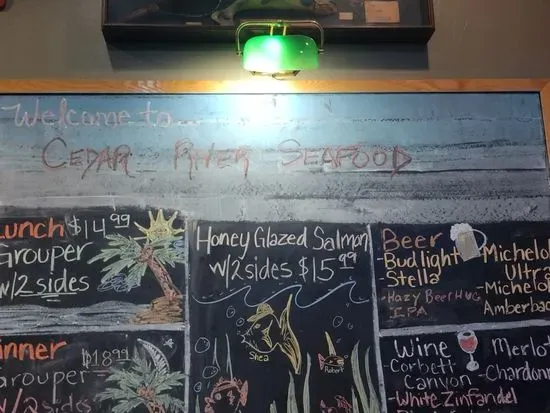 Welcome to...
CEDAR RIVER SEAFOOD
Lunch $14.99
Grouper
w/2 sides
Dinner $18.99
Grouper
w/2 sides
Honey Glazed Salmon
w/2 sides $15.99
Shea
Robert
Beer
-Bud light
-Stella
-Hazy Beer Hug
IPA
-Michelob
Ultra
-Michelob
Amberbock
Wine
-Corbett
Canyon
-White Zinfandel
Merlot
-Chardonnay